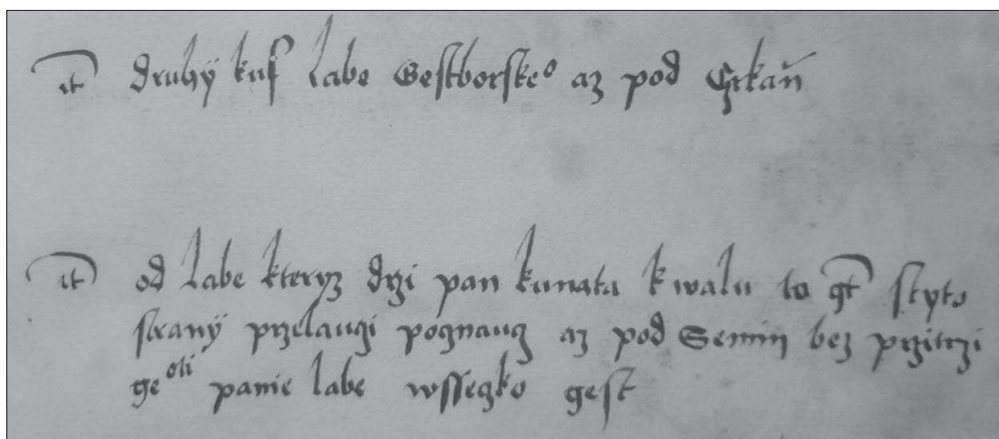 it druhy kus labe Gestborske° az pod Crkań
it od labe kteryz drzi pan kunata k walu to gt styto
strany przelaugi pognaug az pod Semin bez przitrzi
ge panie labe wssegko gest